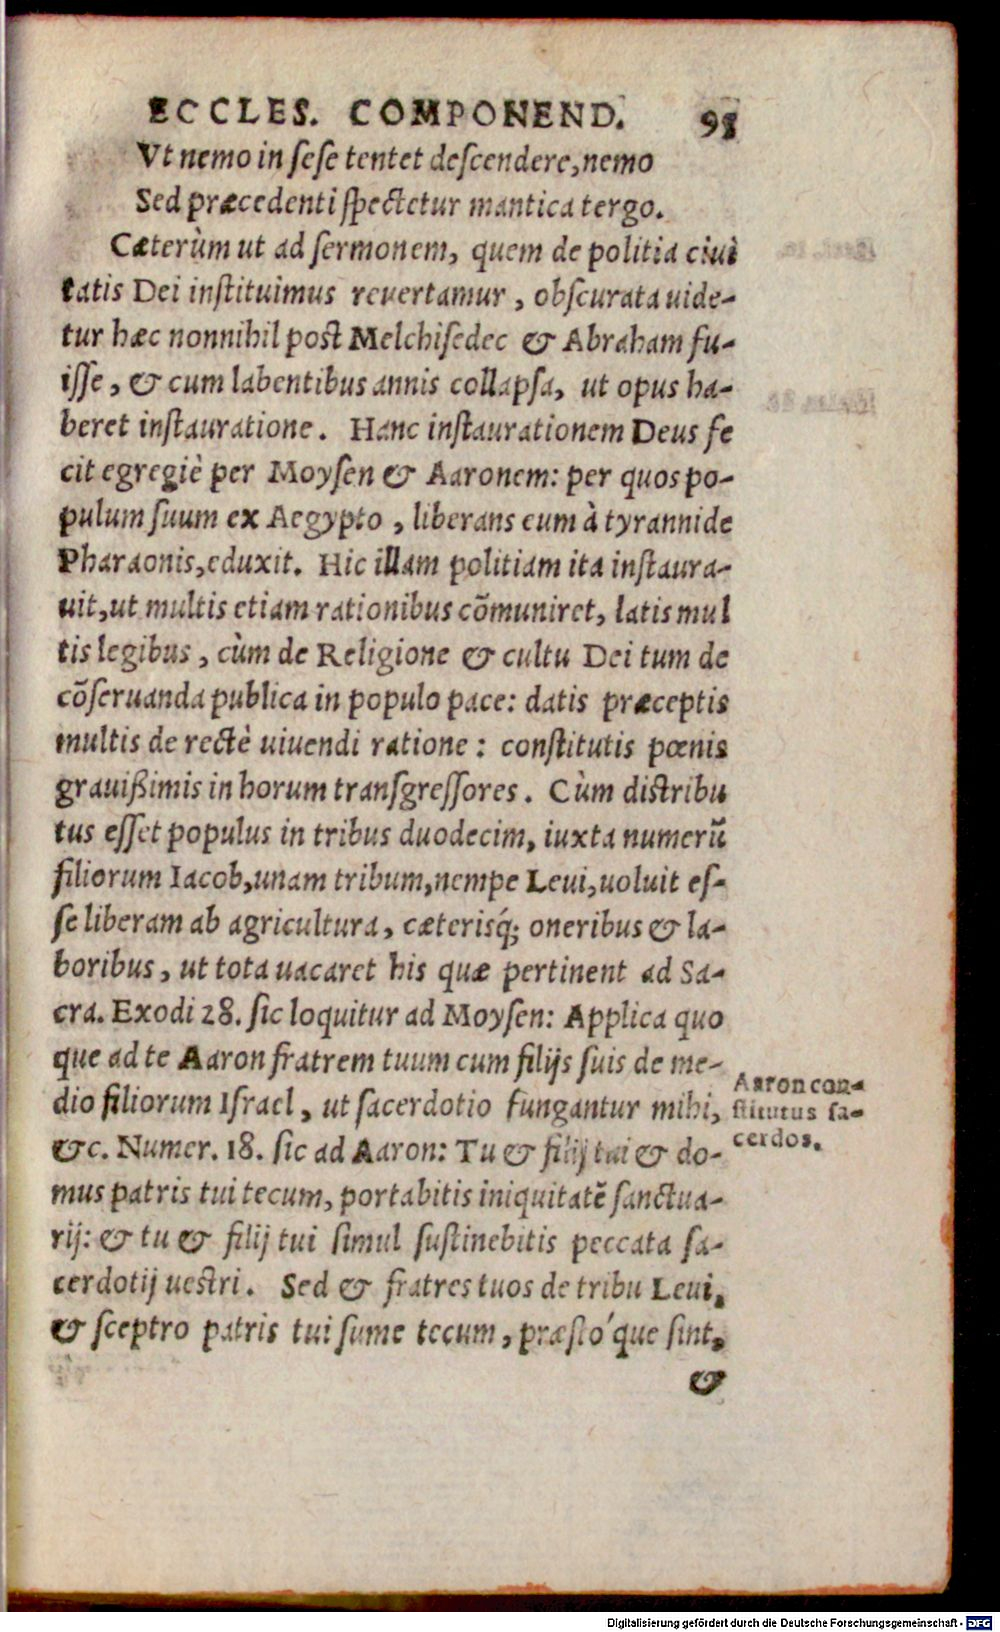 ECCLES. COMPONEND. 95
Vt nemo in sese tentet descendere, nemo
Sed præcedenti spectetur mantica tergo.
Cæterùm ut ad sermonem, quem de politia ciui
tatis Dei instituimus reuertamur, obscurata uide-
tur hæc nonnihil post Melchisedec & Abraham fu-
isse, & cum labentibus annis collapsa, ut opus ha-
beret instauratione. Hanc instaurationem Deus fe
cit egregiè per Moysen & Aaronem: per quos po-
pulum suum ex Aegypto, liberans eum à tyrannide
Pharaonis, eduxit. Hic illam politiam ita instaura-
uit, ut multis etiam rationibus cõmuniret, latis mul
tis legibus, cùm de Religione & cultu Dei tum de
cõseruanda publica in populo pace: datis præceptis
multis de rectè uiuendi ratione: constitutis pœnis
grauißimis in horum transgressores. Cùm distribu
tus esset populus in tribus duodecim, iuxta numerũ
filiorum Iacob, unam tribum, nempe Leui, uoluit es-
se liberam ab agricultura, cæterisq́; oneribus & la-
boribus, ut tota uacaret his quæ pertinent ad Sa-
cra. Exodi 28. sic loquitur ad Moysen: Applica quo
que ad te Aaron fratrem tuum cum filijs suis de me-
dio filiorum Israel, ut sacerdotio fungantur mihi,
&c. Numer. 18. sic ad Aaron: Tu & filij tui & do-
mus patris tui tecum, portabitis iniquitatẽ sanctua-
rij: & tu & filij tui simul sustinebitis peccata sa-
cerdotij uestri. Sed & fratres tuos de tribu Leui,
& sceptro patris tui sume tecum, præstó que sint,
&
Aaron con-
stitutus sa-
cerdos.
Digitalisierung gefördert durch die Deutsche Forschungsgemeinschaft - DFG